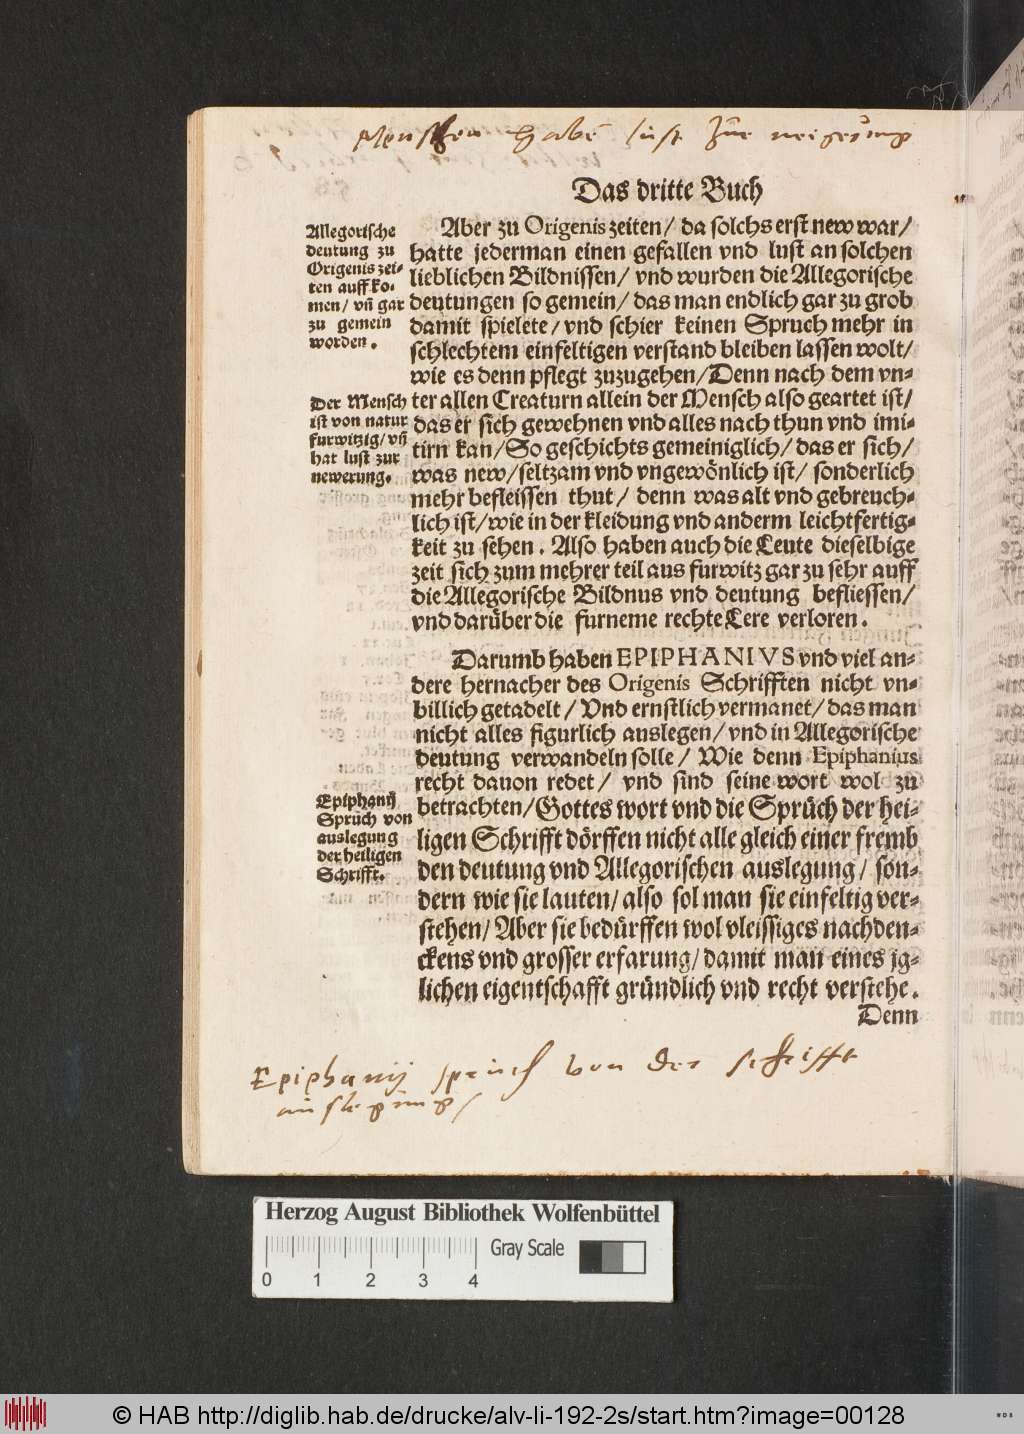 Menschen habē lust zur neigerung
Das dritte Buch
Allegorische
deutung zu
Origenis zei-
ten auff ko-
men/ vñ gar
zu gemein
worden.
Der Mensch
ist von natur
furwitzig/ vñ
hat lust zur
newerung.
Aber zu Origenis zeiten/ da solchs erst new war/
hatte jederman einen gefallen vnd lust an solchen
lieblichen Bildnissen/ vnd wurden die Allegorische
deutungen so gemein/ das man endlich gar zu grob
damit spielete/ vnd schier keinen Spruch mehr in
schlechtem einfeltigen verstand bleiben lassen wolt/
wie es denn pflegt zuzugehen/ Denn nach dem vn-
ter allen Creaturn allein der Mensch also geartet ist/
das er sich gewehnen vnd alles nach thun vnd imi-
tirn kan/ So geschichts gemeiniglich/ das er sich/
was new/ seltzam vnd vngewönlich ist/ sonderlich
mehr befleissen thut/ denn was alt vnd gebreuch-
lich ist/ wie in der kleidung vnd anderm leichtfertig-
keit zu sehen. Also haben auch die Leute dieselbige
zeit sich zum mehrer teil aus furwitz gar zu sehr auff
die Allegorische Bildnus vnd deutung befliessen/
vnd darüber die furneme rechte Lere verloren.
Darumb haben EPIPHANIVS vnd viel an-
dere hernacher des Origenis Schrifften nicht vn-
billich getadelt/ Vnd ernstlich vermanet/ das man
nicht alles figurlich auslegen/ vnd in Allegorische
deutung verwandeln solle/ Wie denn Epiphanius
recht dauon redet/ vnd sind seine wort wol zu
betrachten/ Gottes wort vnd die Sprüch der hei-
ligen Schrifft dörffen nicht alle gleich einer fremb
den deutung vnd Allegorischen auslegung/ son-
dern wie sie lauten/ also sol man sie einfeltig ver-
stehen/ Aber sie bedürffen wol vleissiges nachden-
ckens vnd grosser erfarung/ damit man eines jg-
lichen eigentschafft gründlich vnd recht verstehe.
Denn
Epiphanij
Sprüch von
auslegung
der heiligen
Schrifft.
Epiphanij spruch von der schrifft
auslegung/
Herzog August Bibliothek Wolfenbüttel
Gray Scale
0 1 2 3 4
© HAB http://diglib.hab.de/drucke/alv-li-192-2s/start.htm?image=00128